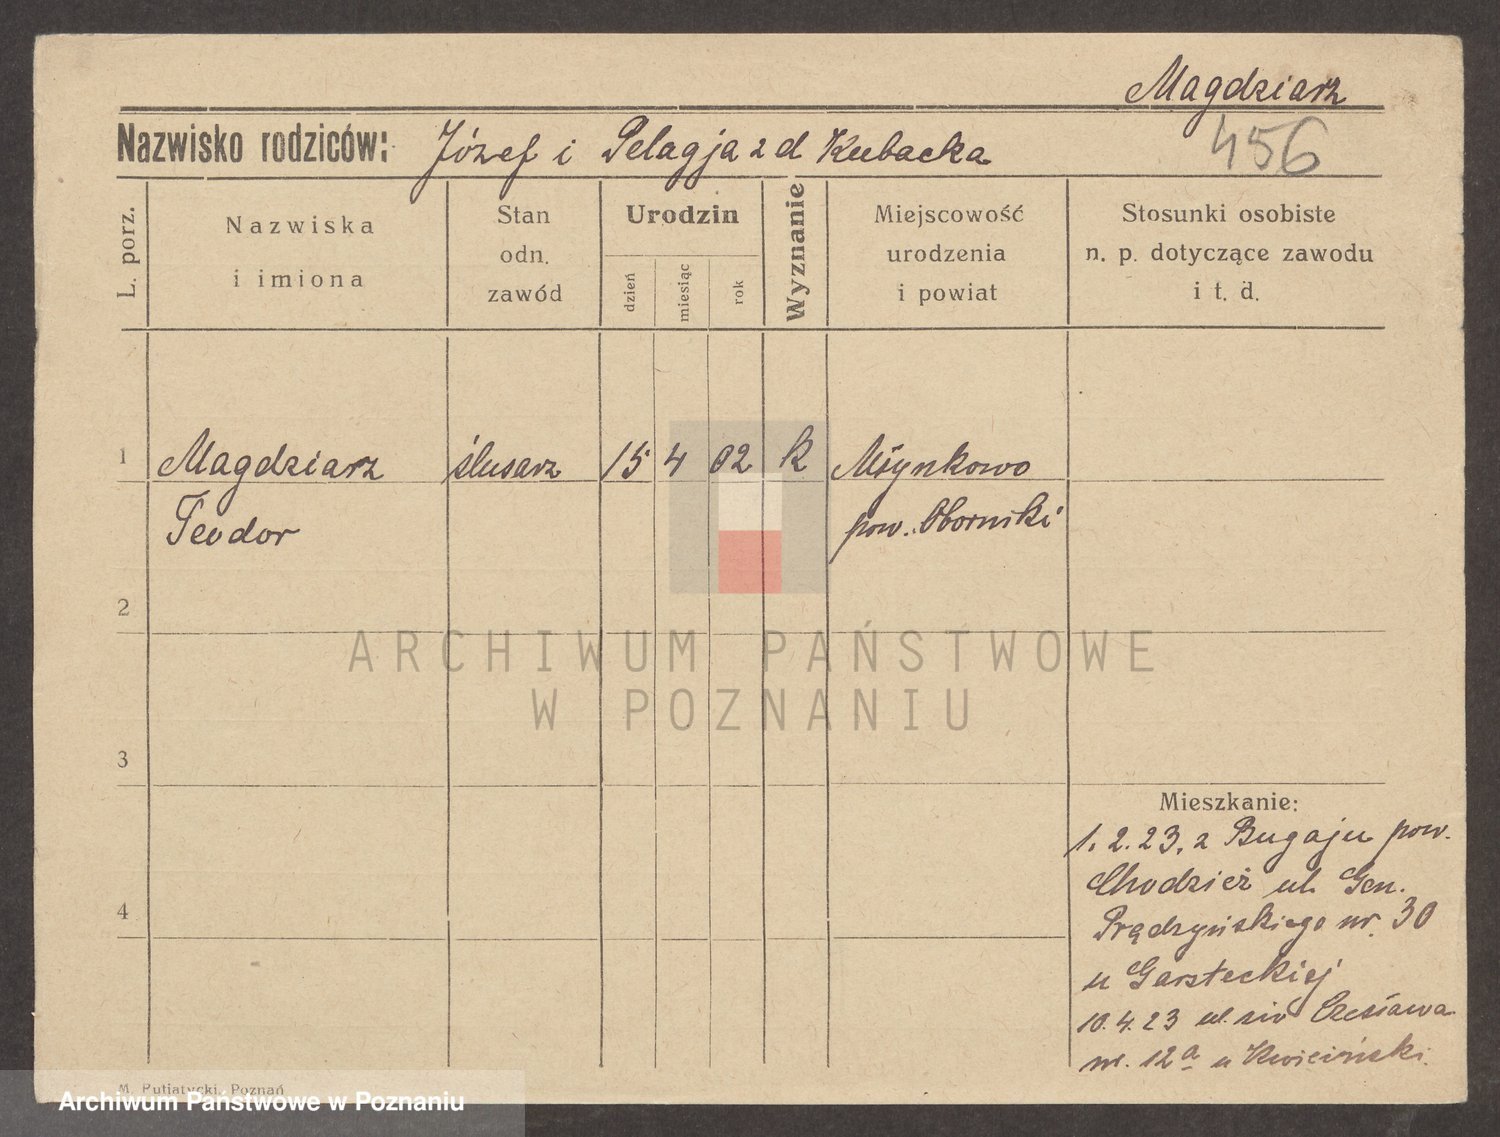 Magdziarz
Nazwisko rodziców: Józef i Pelagja z d Kubacka
456
L. porz.
Nazwiska
i imiona
Stan
odn.
zawód
Urodzin
dzień
miesiąc
rok
Wyznanie
Miejscowość
urodzenia
i powiat
Stosunki osobiste
n. p. dotyczące zawodu
i t. d.
1 Magdziarz ślusarz 15 4 02 k Młynkowo
Teodor pow. Oborniki
2
3
4
Mieszkanie:
1.2.23. z Bugaju pow.
Chodzież ul. Gen.
Prądzyńskiego nr. 30
u Garsteckiej
10.4.23 ul. św Czesława
nr. 12a u Kwiciński
M. Putiatycki, Poznań
ARCHIWUM PAŃSTWOWE
W POZNANIU
Archiwum Państwowe w Poznaniu